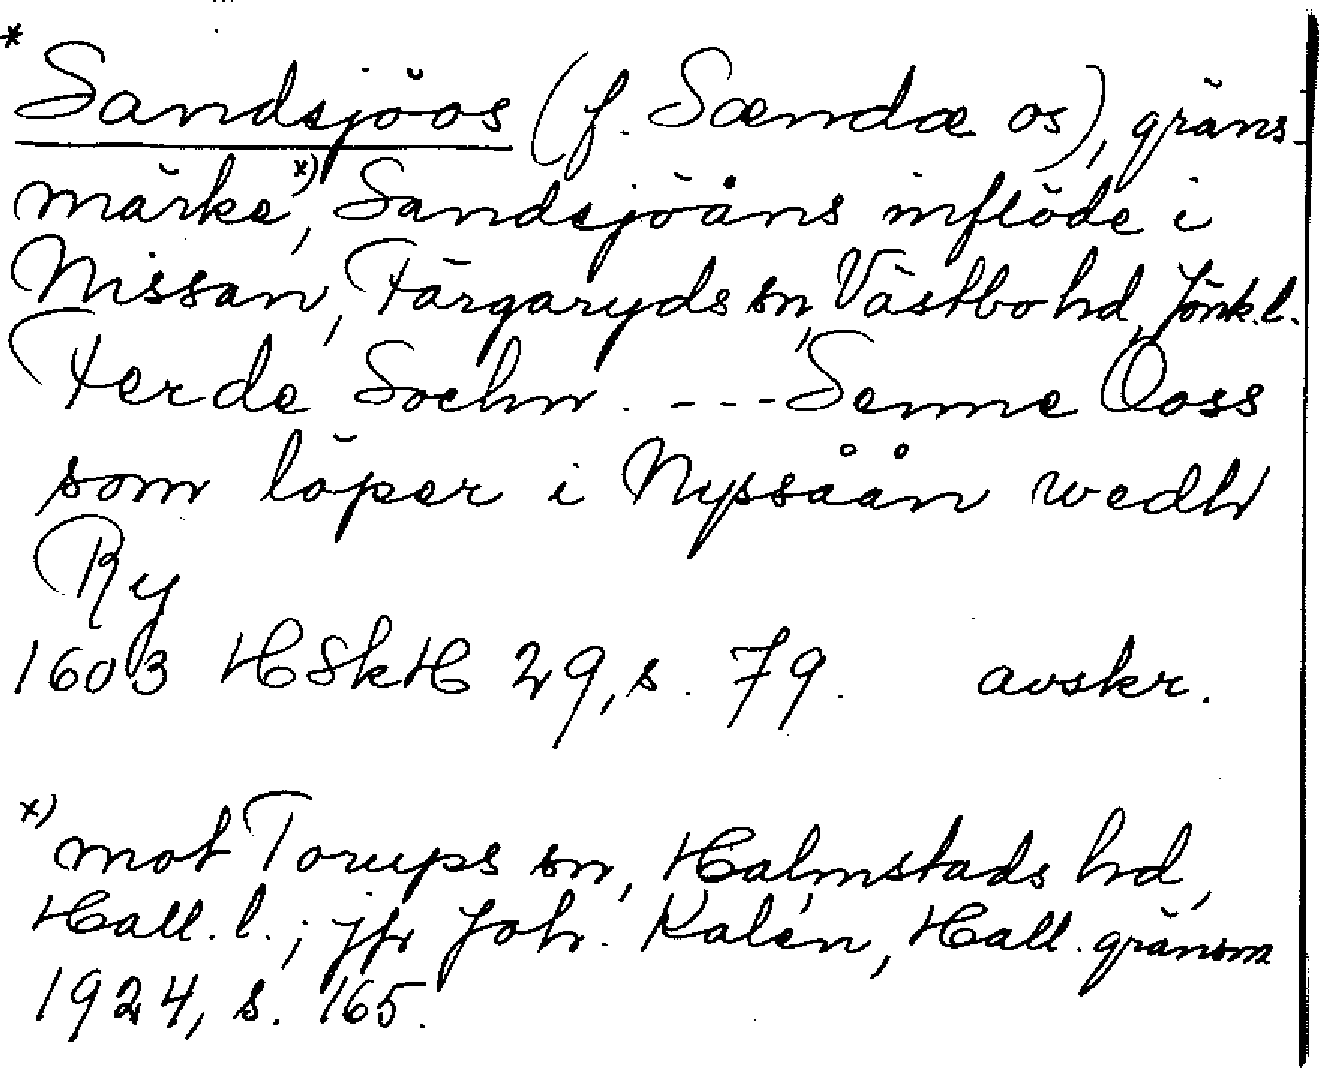 * Sandsjöos (f. Sændæ os), gräns-
märke x), Sandsjöåns inflöde i
Nissan, Färgaryds sn, Västbo hd, Jönk. l.
Ferde Soehn. ---- Senne Ooss
som löper i Nyssåån wedh
Ry
1603 HSkH 29, s. 79. avskr.
x) mot Torups sn, Halmstads hd,
Hall. l.; jfr Joh. Kalén, Hall. gränsm
1924, s. 165.